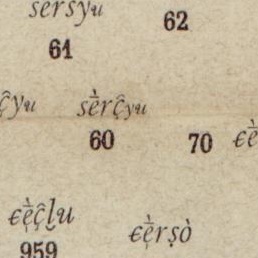 sersyu
62
61
ĉyu sẹ̀rĉyu
60 70 єẹ̀
єẹ̀ĉḷu
959 єẹ̀rṣò